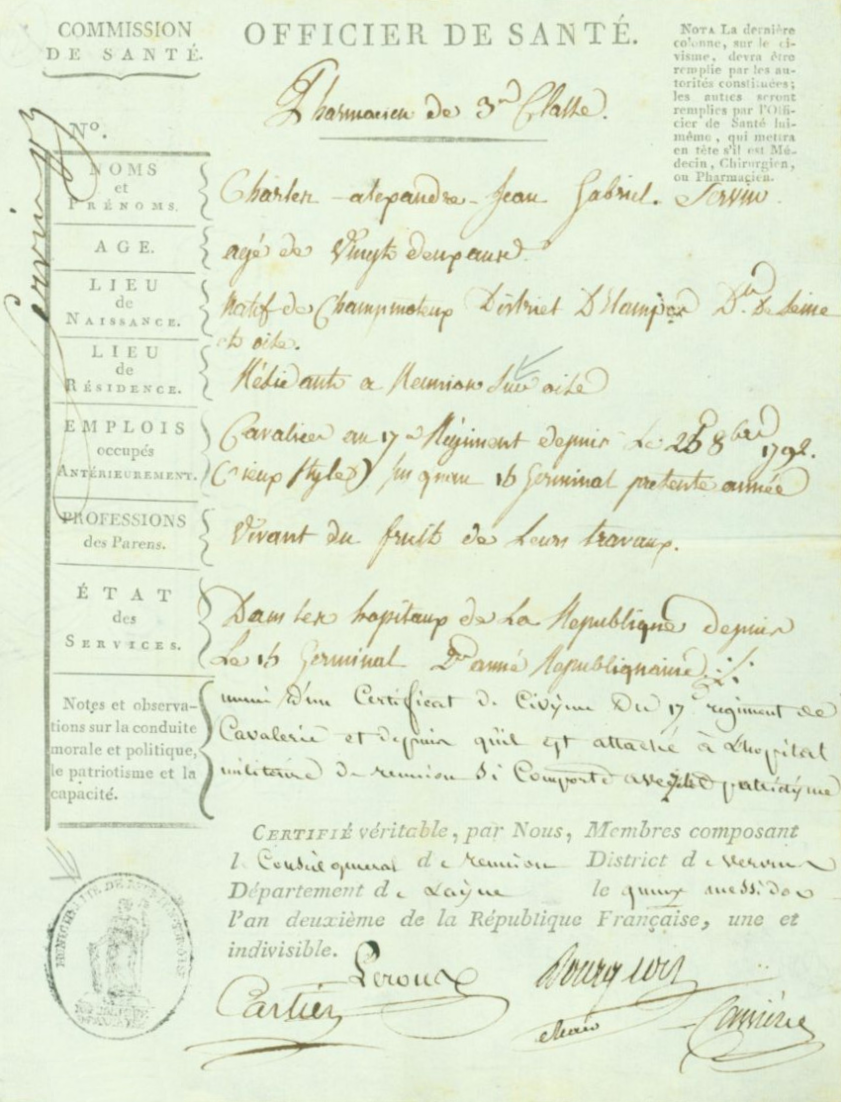 COMMISSION
DE SANTÉ.
OFFICIER DE SANTÉ.
NOTA La dernière
colonne, sur le ci-
visme, devra être
remplie par les au-
torités constituées;
les autres seront
remplies par l'Offi-
cier de Santé lui-
même, qui mettra
en tête s'il est Mé-
decin, Chirurgien,
ou Pharmacien.
Pharmacien de 3me Classe.
N°.
Servin
NOMS
et
PRÉNOMS.
Charles - alexandre - Jean Gabriel. Servin
AGE.
agé de Vingt deux ans.
LIEU
de
NAISSANCE.
Natif de Champmoteux District D'Etampes Dt. De Seine
et oise.
LIEU
de
RÉSIDENCE.
Résidant a Reunion Sur oise
EMPLOIS
occupés
ANTÉRIEUREMENT.
Cavalier au 17e Régiment depuis Le 26 8bre 1792.
(vieux style) jusqu'au 16 Germinal presente année
PROFESSIONS
des Parens.
Vivant du fruit de Leurs travaux.
ÉTAT
des
SERVICES.
Dans les hopitaux de La Republique depuis
Le 16 Germinal 2e année Republiquaine
Notes et observa-
tions sur la conduite
morale et politique,
le patriotisme et la
capacité.
muni d'un Certificat de Civisme Du 17e regiment de
Cavalerie et depuis qu'il est attaché à L'hopital
militaire de reunion Si Comporte avec patriotisme
CERTIFIÉ véritable, par Nous, Membres composant
l. Conseil general de reunion District de vervin
Département de Laisne le quinze messidor
l'an deuxième de la République Française, une et
indivisible.
Leroux
Bourgeois
Cartier
Carrière